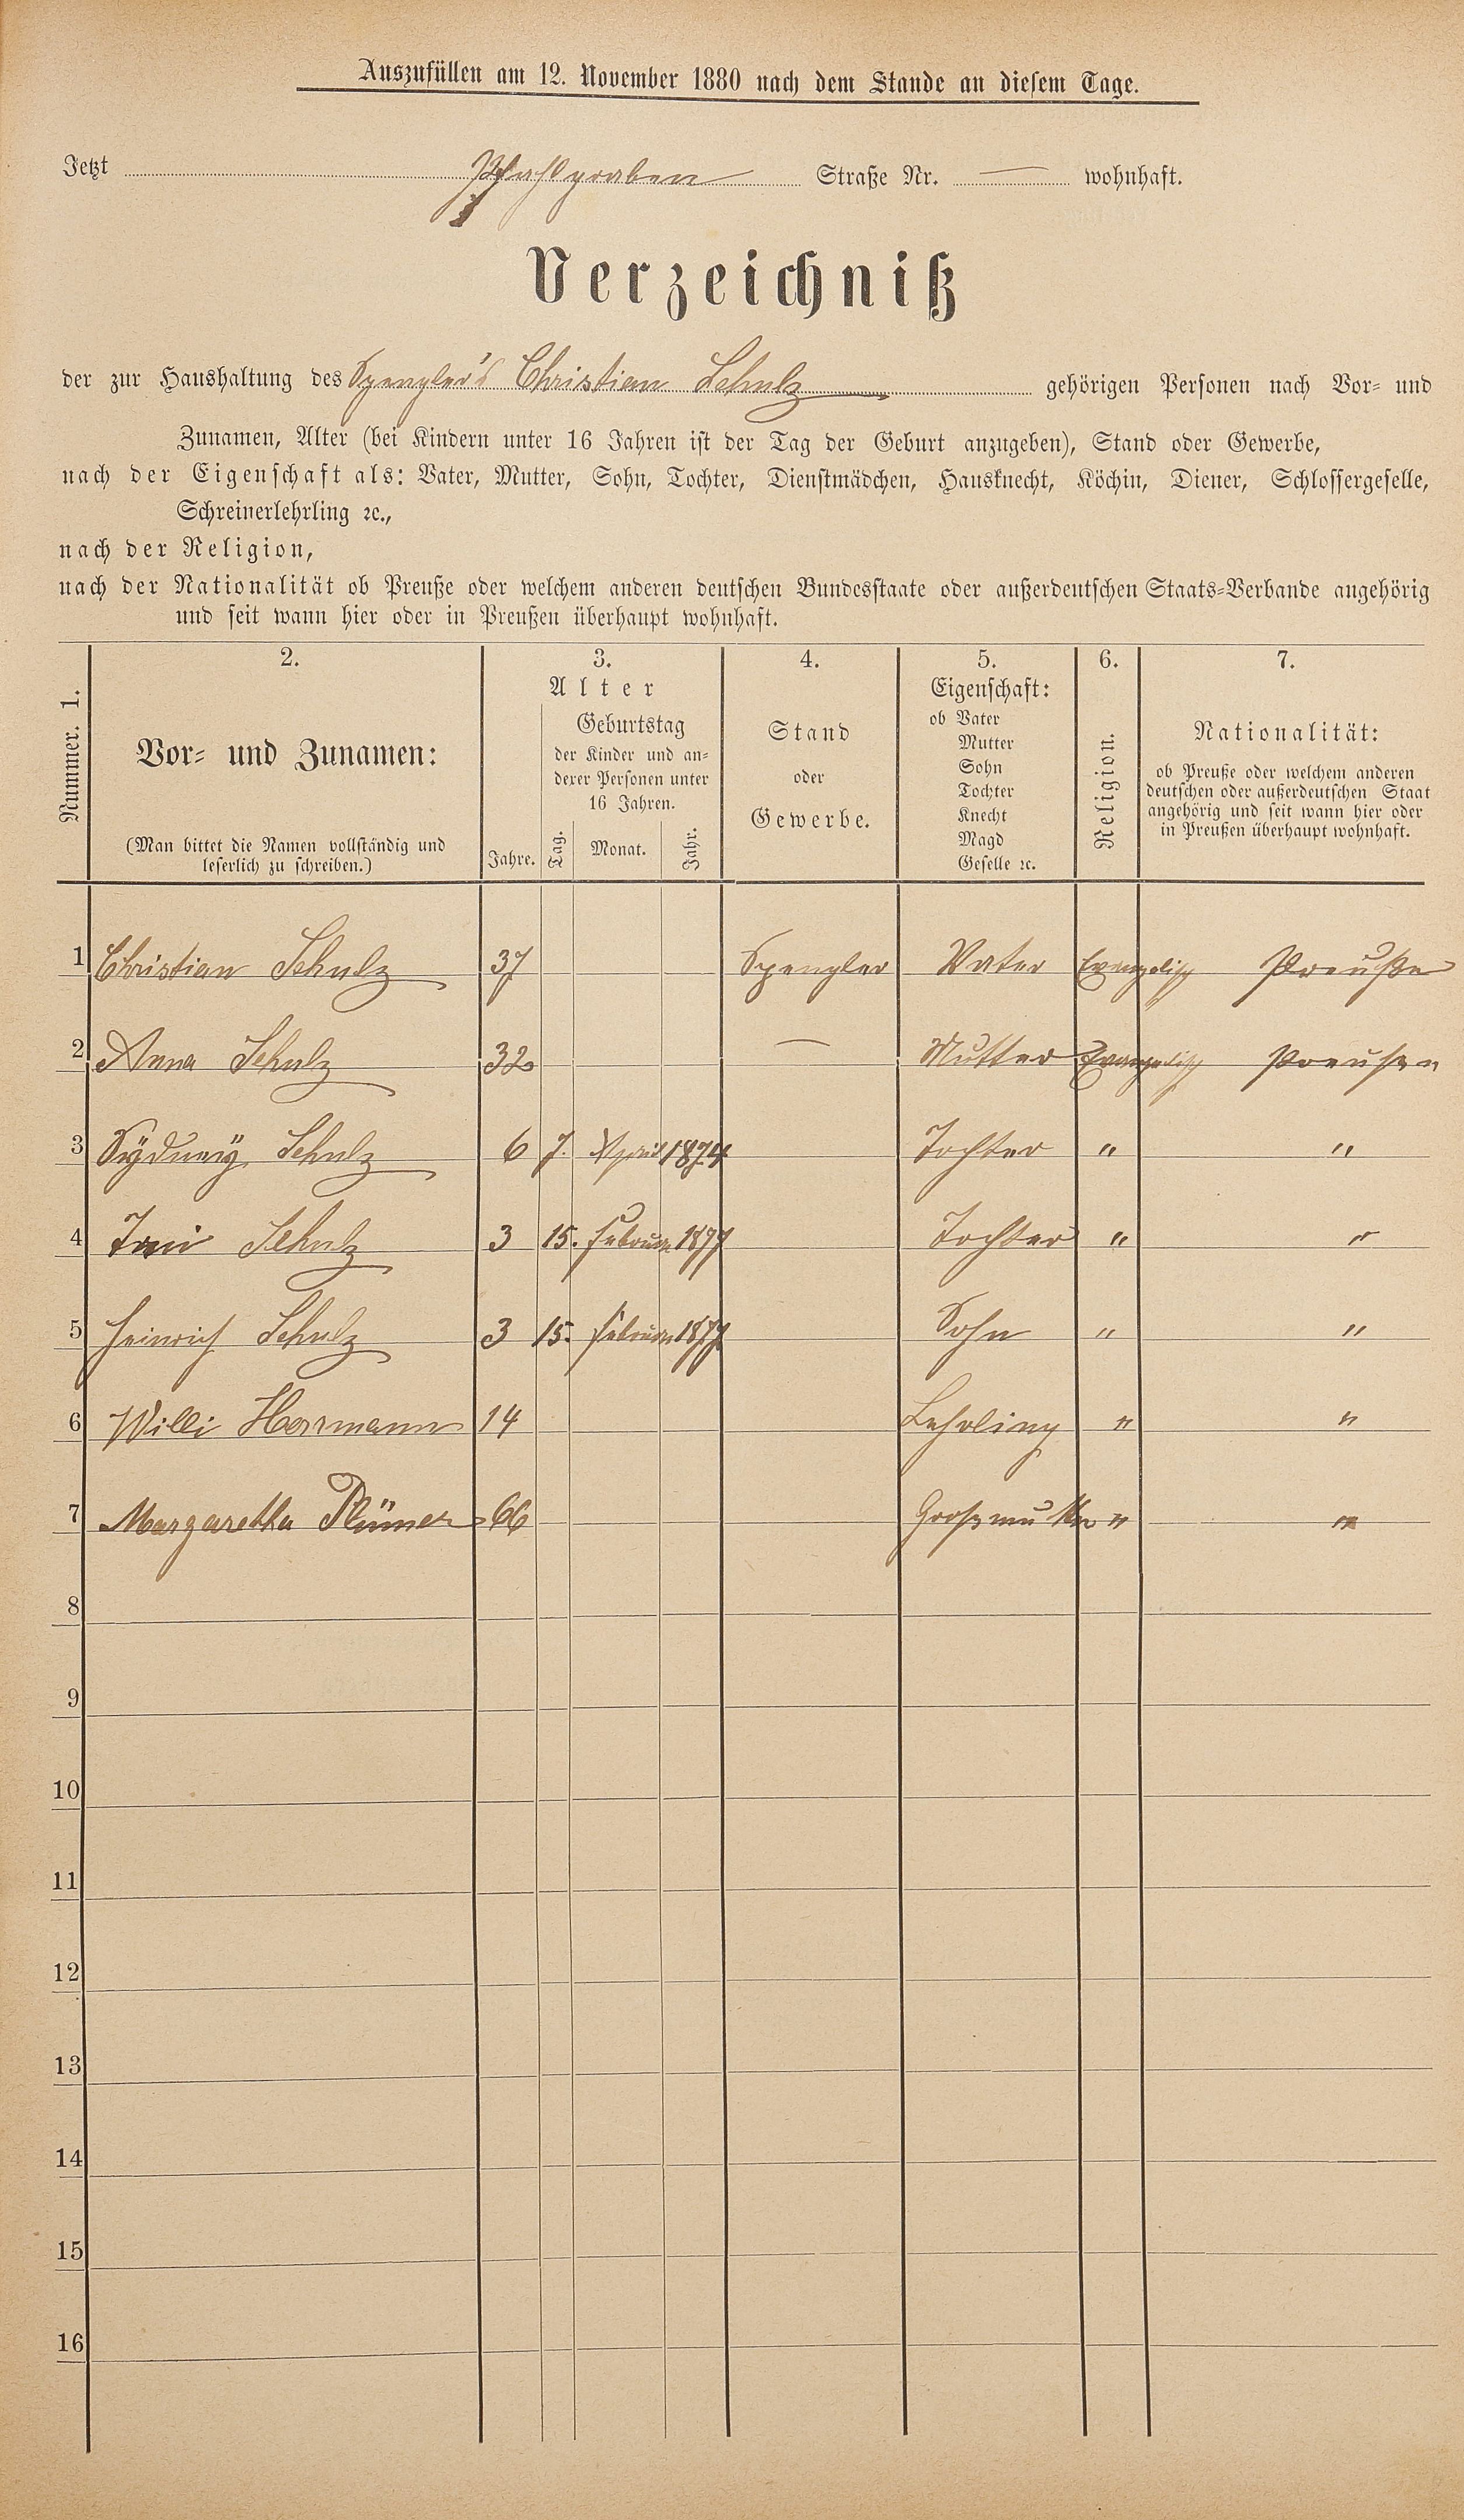 Auszufüllen am 12. November 1880 nach dem Stande an diesem Tage.
Jetzt Pfahlgraben Straße Nr. — wohnhaft.
Verzeichniß
der zur Haushaltung des Spengler's Christian Schulz gehörigen Personen nach Vor- und
Zunamen, Alter (bei Kindern unter 16 Jahren ist der Tag der Geburt anzugeben), Stand oder Gewerbe,
nach der Eigenschaft als: Vater, Mutter, Sohn, Tochter, Dienstmädchen, Hausknecht, Köchin, Diener, Schlossergeselle,
Schreinerlehrling ꝛc.,
nach der Religion,
nach der Nationalität ob Preuße oder welchem anderen deutschen Bundesstaate oder außerdeutschen Staats-Verbande angehörig
und seit wann hier oder in Preußen überhaupt wohnhaft.
Nummer. 1.
2.
Vor- und Zunamen:
(Man bittet die Namen vollständig und
leserlich zu schreiben.)
3.
Alter
Jahre.
Geburtstag
der Kinder und an-
derer Personen unter
16 Jahren.
Tag. Monat. Jahr.
4.
Stand
oder
Gewerbe.
5.
Eigenschaft:
ob Vater
Mutter
Sohn
Tochter
Knecht
Magd
Geselle ꝛc.
6.
Religion.
7.
Nationalität:
ob Preuße oder welchem anderen
deutschen oder außerdeutschen Staat
angehörig und seit wann hier oder
in Preußen überhaupt wohnhaft.
1 Christian Schulz 37 Spengler Vater Evangelisch Preuße
2 Anna Schulz 32 — Mutter Evangelisch Preußen
3 Sydney Schulz 6 7. April 1874 Tochter " "
4 Schulz 3 15. Februar 1877 Tochter " "
5 Heinrich Schulz 3 15. Februar 1877 Sohn " "
6 Willi Herrmann 14 Lehrling " "
7 Margaretha Plümer 66 Großmutter " "
8
9
10
11
12
13
14
15
16